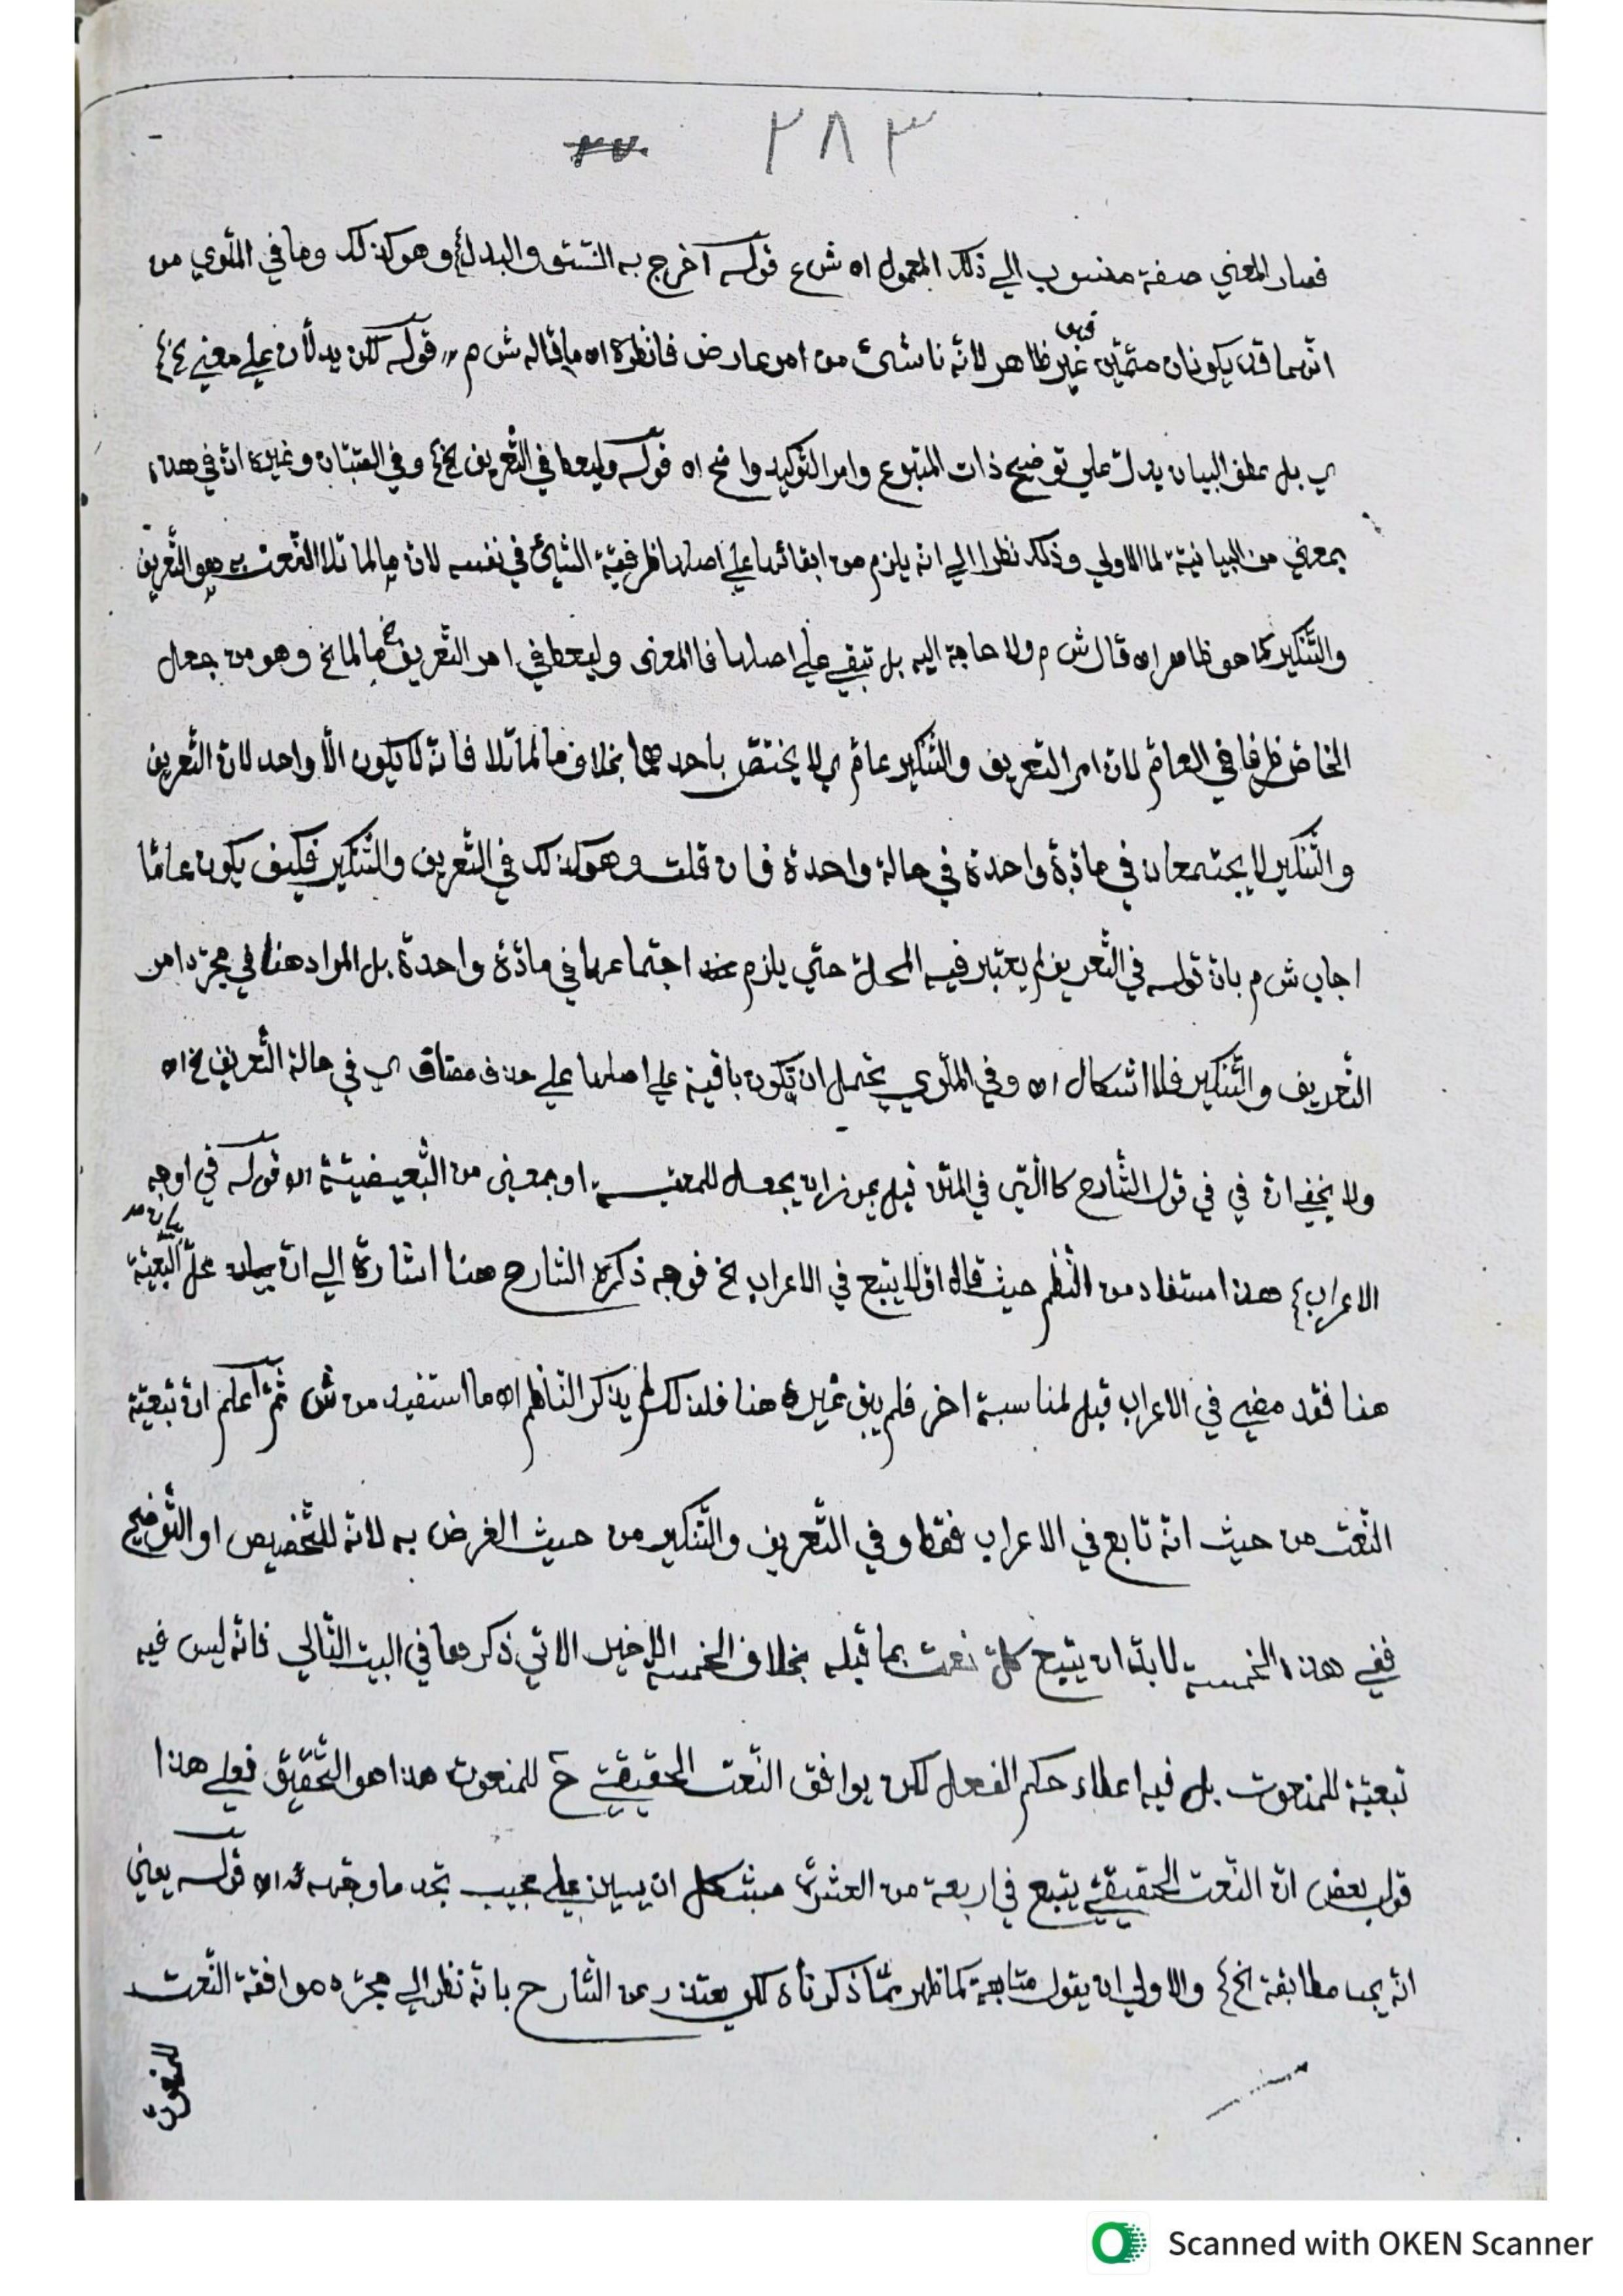 ٢٨٣
فصار المعنى صفة منسوب الي ذلك المعمول اه ش ع قوله اخرج به النسق والبدل} وهو كذلك وما في الملوي من
انهما قد يكونان متمين فهو غير ظاهر لانه ناشئ من امر عارض فانظره اه ما قاله ش م قوله لكن يدلان علي معني الخ}
ي بل عطف البيان يدل علي توضيح ذات المتبوع وامر التوكيد واضح اه قوله وليعط في التعريف الخ} وفي الصبان وغيره ان في هذه
بمعني من البيانية لما الاولي وذلك نظرا الي انه يلزم من ابقائها علي اصلها ظرفية الشيئ في نفسه لان ما لما تلا النعت هو التعريف
والتنكير كما هو ظاهر اه قال ش م ولا حاجة اليه بل تبقي علي اصلها فالمعنى وليعط في امر التعريف الخ ما لما الخ وهو من جعل
الخاص ظرفا في العام لان امر التعريف والتنكير عام ي لا يختص باحدهما بخلاف ما لما تلا فانه لا يكون الا واحد لان التعريف
والتنكير لا يجتمعان في مادة واحدة في حالة واحدة فان قلت وهو كذلك في التعريف والتنكير فكيف يكون عاما
اجاب ش م بان قوله في التعريف لم يعتبر فيه المحل حتي يلزم اجتماعهما في مادة واحدة بل المراد هنا في مجرد امر
التعريف والتنكير فلا اشكال اه وفي الملوي يحتمل ان تكون باقية علي اصلها علي حذف مضاف ي في حالة التعريف الخ اه
ولا يخفي ان في في قول الشارح كالتي في المتن فيجوز ان يجعل او بمعنى من التبعيضية اه قوله في اوجه
الاعراب} هذا مستفاد من النظم حيث قال اولا يتبع في الاعراب الخ فوجه ذكره الشارح هنا اشارة الي ان بيان محل التبعية
هنا فقد مضي في الاعراب قبل لمناسبة اخر فلم يبق غيره هنا فلذلك لم يذكر الناظم اه ما استفيد من ش ثم اعلم ان تبعية
النعت من حيث انه تابع في الاعراب فقط وفي التعريف والتنكير من حيث الغرض به لانه للتخصيص او التوضيح
ففي هذه الخمسة لابد ان يتبع كل نعت بما قبله بخلاف الخمسة الاخير الاتي ذكرها في البيت التالي فانه ليس فيه
تبعية للمنعوت بل فيه اعطاء حكم الفعل لكن يوافق النعت الحقيقي ح للمنعوت هذا هو التحقيق فعلي هذا
قول بعض ان النعت الحقيقي يتبع في اربعة من العشرة مشكل ان يبين علي مجيب تجد ما وجهه اه قوله يعني
انه يجب مطابقة الخ} والاولي ان يقول متابعة كما ظهر مما ذكرناه لكن يعتذر عن الشارح بانه نظر الي مجرد موافقة النعت
للمنعوت
Scanned with OKEN Scanner